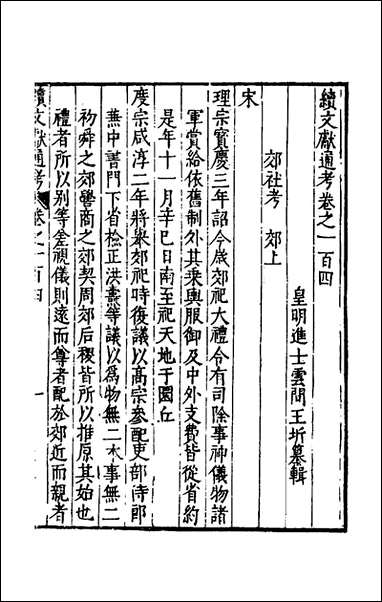 續文獻通考卷之一百四
皇明進士雲間王圻纂輯
郊社考 郊上
宋
理宗寶慶三年詔今歲郊祀大禮令有司除事神儀物諸
軍賞給依舊制外其乗輿服御及中外支費皆從省約
是年十一月辛巳日南至祀天地于圜丘
度宗咸淳二年將舉郊祀時復議以高宗參配吏部侍郎
兼中書門下省檢正洪燾等議以爲物無二本事無二
初舜之郊嚳商之郊契周郊后稷皆所以推原其始也
禮者所以别等差視儀則遠而尊者配於郊近而親者
續文獻通考 卷之一百四 一